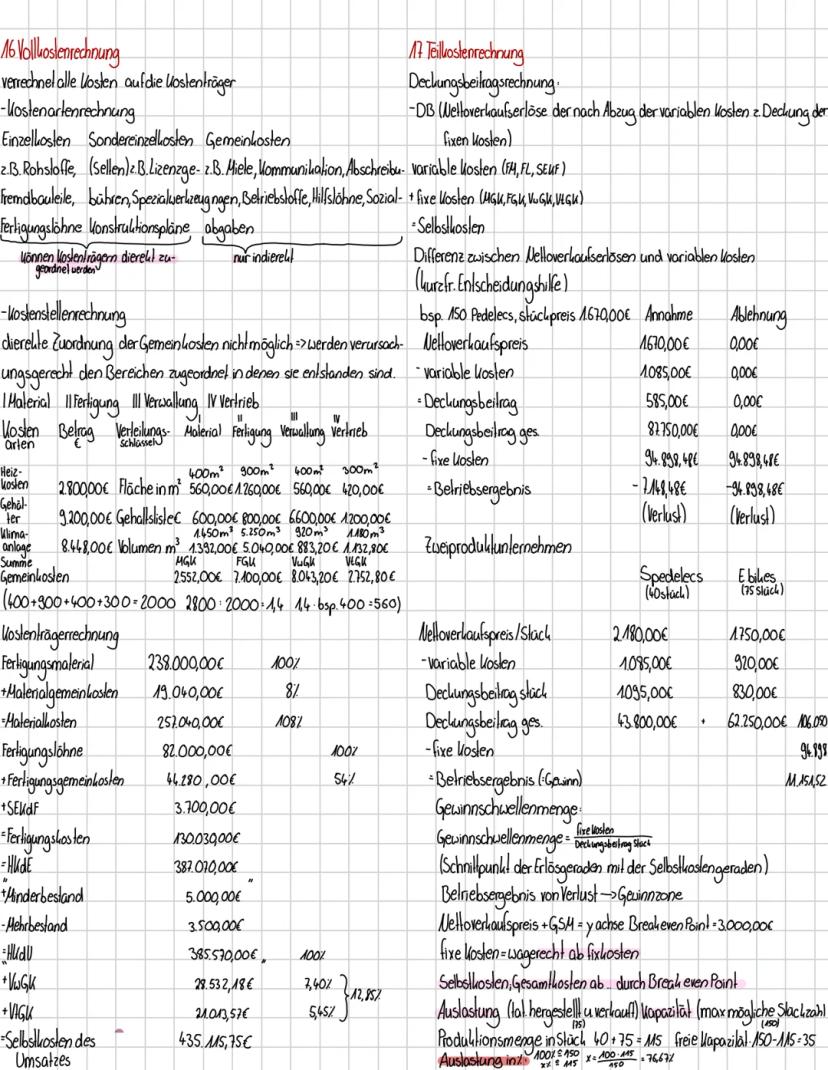 16 Vollkostenrechnung
verrechnet alle Kosten auf die Kostenträger
-Kostenartenrechnung
Einzelkosten Sondereinzelkosten Gemeinkosten
z.B. Rohstoffe, (Sellen) z.B. Lizenzge- z.B. Miele, Kommunikation, Abschreibu-
Fremdbauteile, bühren, Spezialwerkzeug ngen, Betriebstoffe, Hilfslöhne, Sozial-
Fertigungslöhne Konstruktionspläne abgaben
können Kostenträgern dierekt zu- nur indierekt
geordnet werden
-Kostenstellenrechnung
dierekte Zuordnung der Gemeinkosten nicht möglich => werden verursach-
ungsgerecht den Bereichen zugeordnet in denen sie entstanden sind.
I Material II Fertigung III Verwaltung IV Vertrieb
I II III IV
Kosten Betrag Verteilungs- Material Fertigung Verwaltung Vertrieb
arten € schlüssel
400m² 900m² 400m² 300m²
Heiz-
kosten 2.800,00€ Fläche in m² 560,00€ 1.260,00€ 560,00€ 420,00€
Gehäl-
ter 9.200,00€ Gehaltsliste€ 600,00€ 800,00€ 6.600,00€ 1.200,00€
Klima- 1.450m³ 5.250m³ 920m³ 1.180m³
anlage 8.448,00€ Volumen m³ 1.392,00€ 5.040,00€ 883,20€ 1.132,80€
Summe MGK FGK VwGK VtGK
Gemeinkosten 2552,00€ 7.100,00€ 8.043,20€ 2.752,80€
(400+900+400+300=2000 2800:2000=1,4 1,4·bsp.400=560)
Kostenträgerrechnung
Fertigungsmaterial 238.000,00€ 100%
+Materialgemeinkosten 19.040,00€ 8%
=Materialkosten 257.040,00€ 108%
Fertigungslöhne 82.000,00€ 100%
+Fertigungsgemeinkosten 44.280,00€ 54%
+SEKdF 3.700,00€
=Fertigungskosten 130.030,00€
=HKdE 387.070,00€
+Minderbestand 5.000,00€
-Mehrbestand 3.500,00€
=HKdU 385.570,00€ 100%
+VwGK 28.532,18€ 7,40%
12,85%
+VtGK 21.013,57€ 5,45%
=Selbstkosten des 435.115,75€
Umsatzes
17 Teilkostenrechnung
Deckungsbeitragsrechnung:
-DB (Nettoverkaufserlöse der nach Abzug der variablen Kosten z. Deckung der
fixen Kosten)
variable Kosten (FM, FL, SEKF)
+ fixe Kosten (MGK, FGK, VwGK, VtGK)
=Selbstkosten
Differenz zwischen Nettoverkaufserlösen und variablen Kosten
(kurzfr. Entscheidungshilfe)
bsp. 150 Pedelecs, stückpreis 1.670,00€ Annahme Ablehnung
Nettoverkaufspreis 1670,00€ 0,00€
- variable Kosten 1.085,00€ 0,00€
=Deckungsbeitrag 585,00€ 0,00€
Deckungsbeitrag ges. 87.750,00€ 0,00€
- fixe Kosten 94.898,48€ 94.898,48€
=Betriebsergebnis -7.148,48€ -94.898,48€
(Verlust) (Verlust)
Zweiproduktunternehmen
Spedelecs Ebikes
(40stück) (75 Stück)
Nettoverkaufspreis/Stück 2.180,00€ 1.750,00€
-variable Kosten 1.085,00€ 920,00€
Deckungsbeitrag stück 1095,00€ 830,00€
Deckungsbeitrag ges. 43.800,00€ + 62.250,00€ 106.050
-fixe Kosten 94.898
=Betriebsergebnis (=Gewinn) 11.151,52
Gewinnschwellenmenge:
Gewinnschwellenmenge = fixe Kosten
Deckungsbeitrag Stück
(Schnittpunkt der Erlösgeraden mit der Selbstkostengeraden)
Betriebsergebnis von Verlust → Gewinnzone
Nettoverkaufspreis + GSM = y achse Breakeven Point = 3.000,00€
fixe Kosten = wagerecht ab fixkosten
Selbstkosten, Gesamtkosten ab .. durch Break even Point
Auslastung (tat. hergestellt u verkauft) Kapazität (max mögliche Stückzahl
(75) (150)
Produktionsmenge in Stück 40+75=115 freie Kapazität 150-115=35
Auslastung in%: 100% ≙ 150 x = 100·115 = 76,67%
x% ≙ 115 150